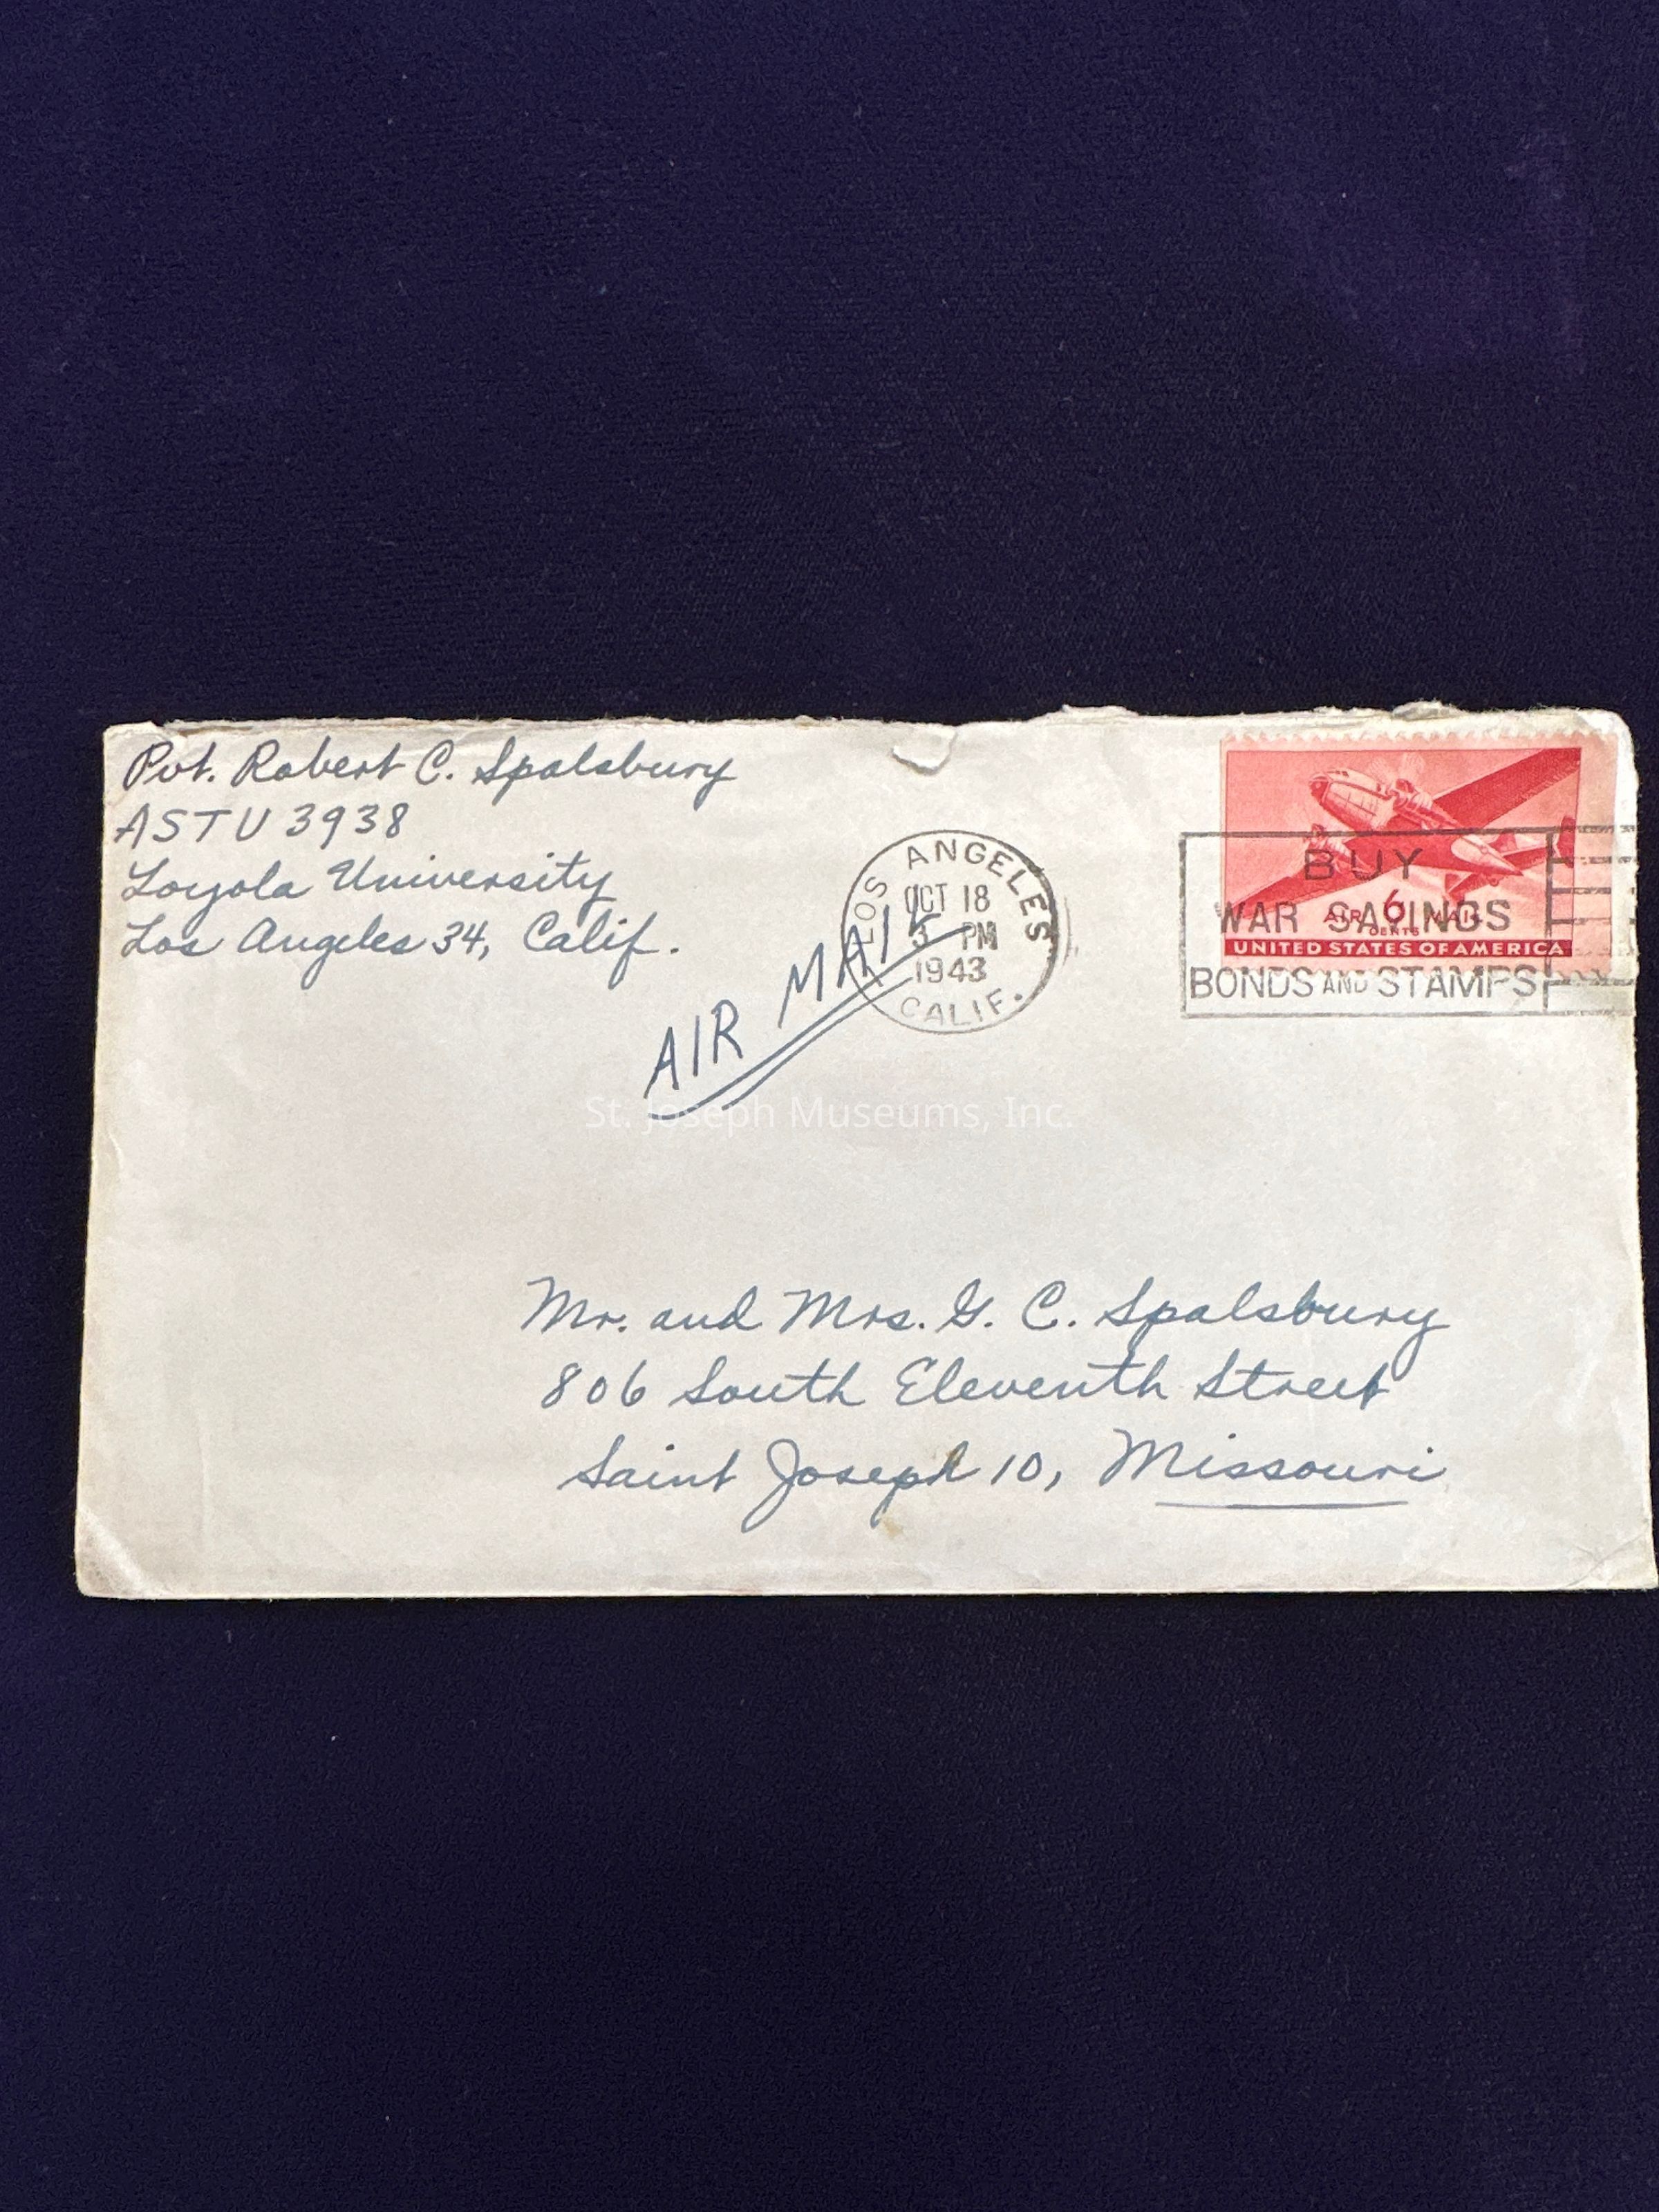 Pvt. Robert C. Spalsbury
ASTU 3938
Loyola University
Los Angeles 34, Calif.
AIR MAIL
LOS ANGELES
OCT 18
3 PM
1943
CALIF.
BUY
WAR SAVINGS
BONDS AND STAMPS
AIR 6 MAIL
CENTS
UNITED STATES OF AMERICA
St. Joseph Museums, Inc.
Mr. and Mrs. G. C. Spalsbury
806 South Eleventh Street
Saint Joseph 10, Missouri